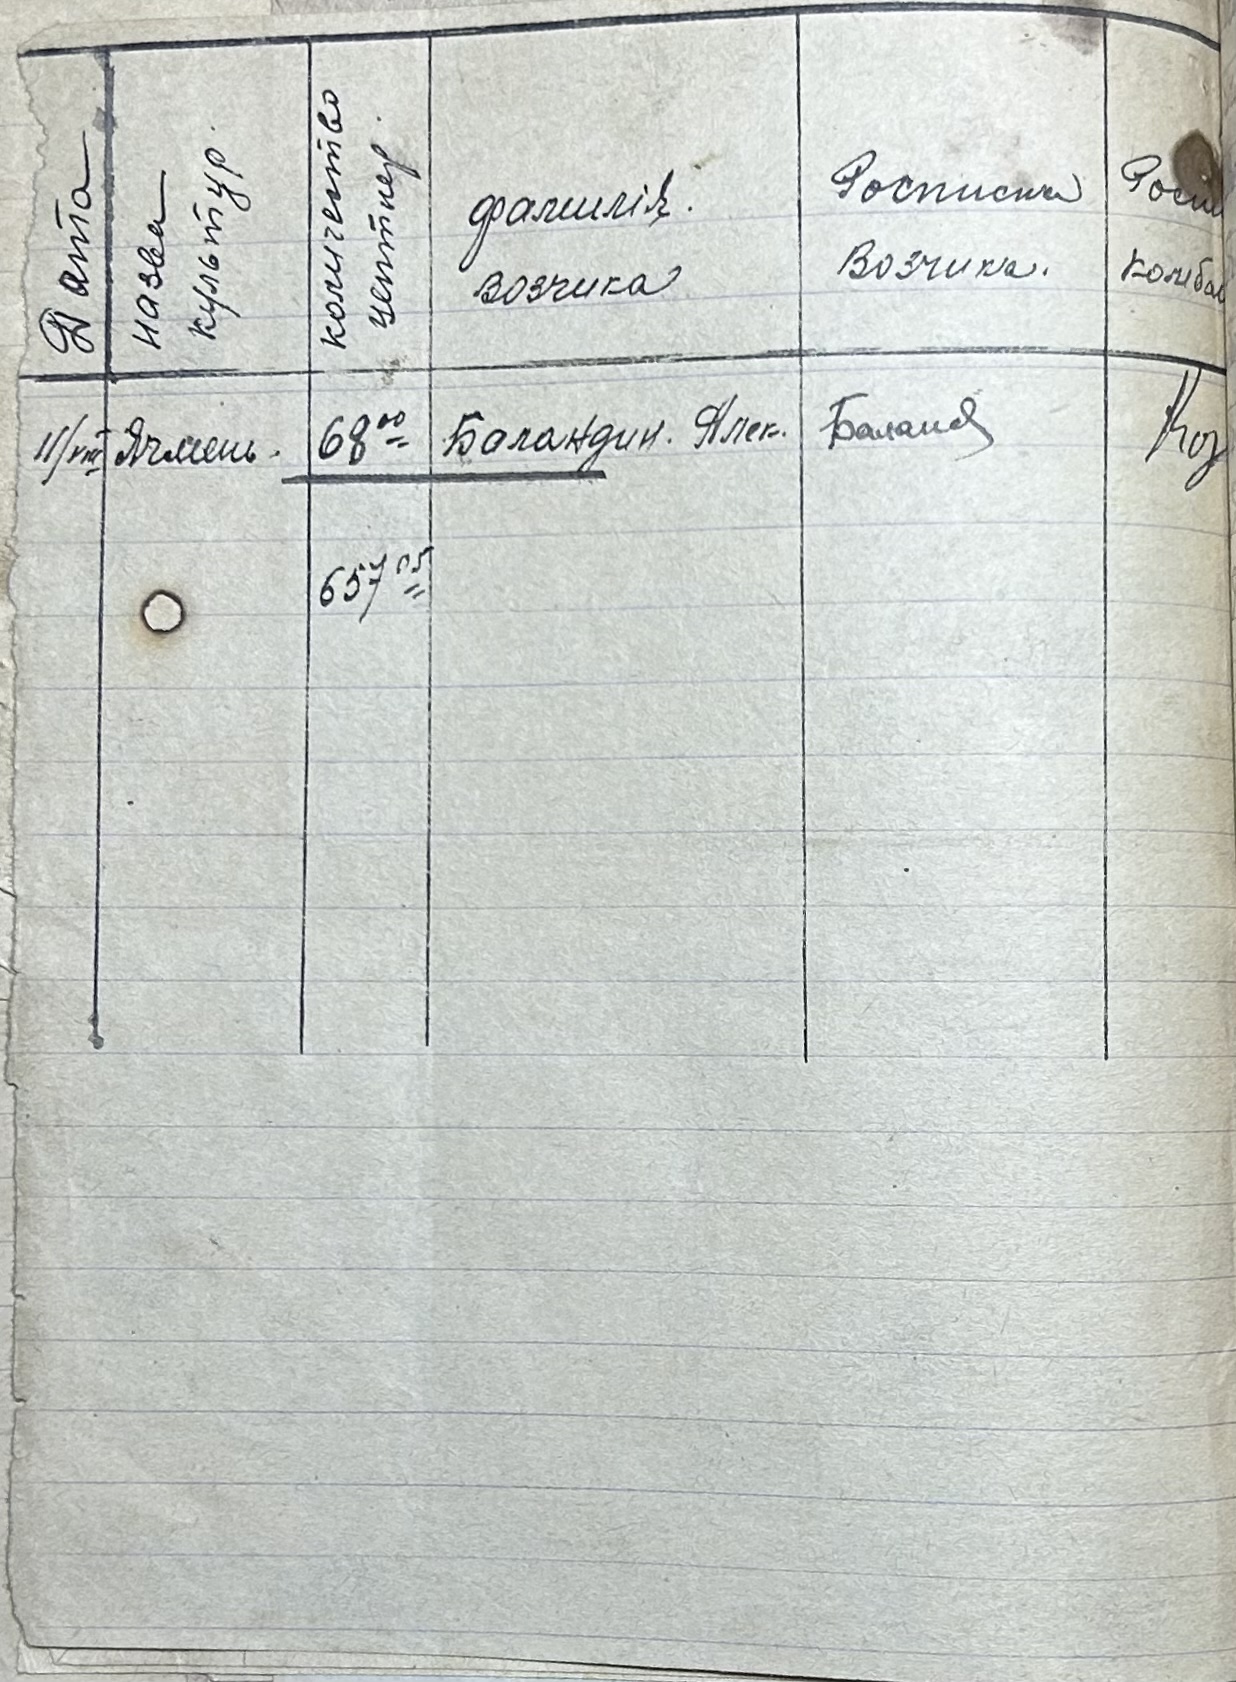 Дата
назва
культур.
количество
центнер.
фамилія.
возчика
Росписка
Возчика.
Росп
комбай
11/VIII Ячмень. 68 00 Баландин. Алек. Баланд Коз
657 05